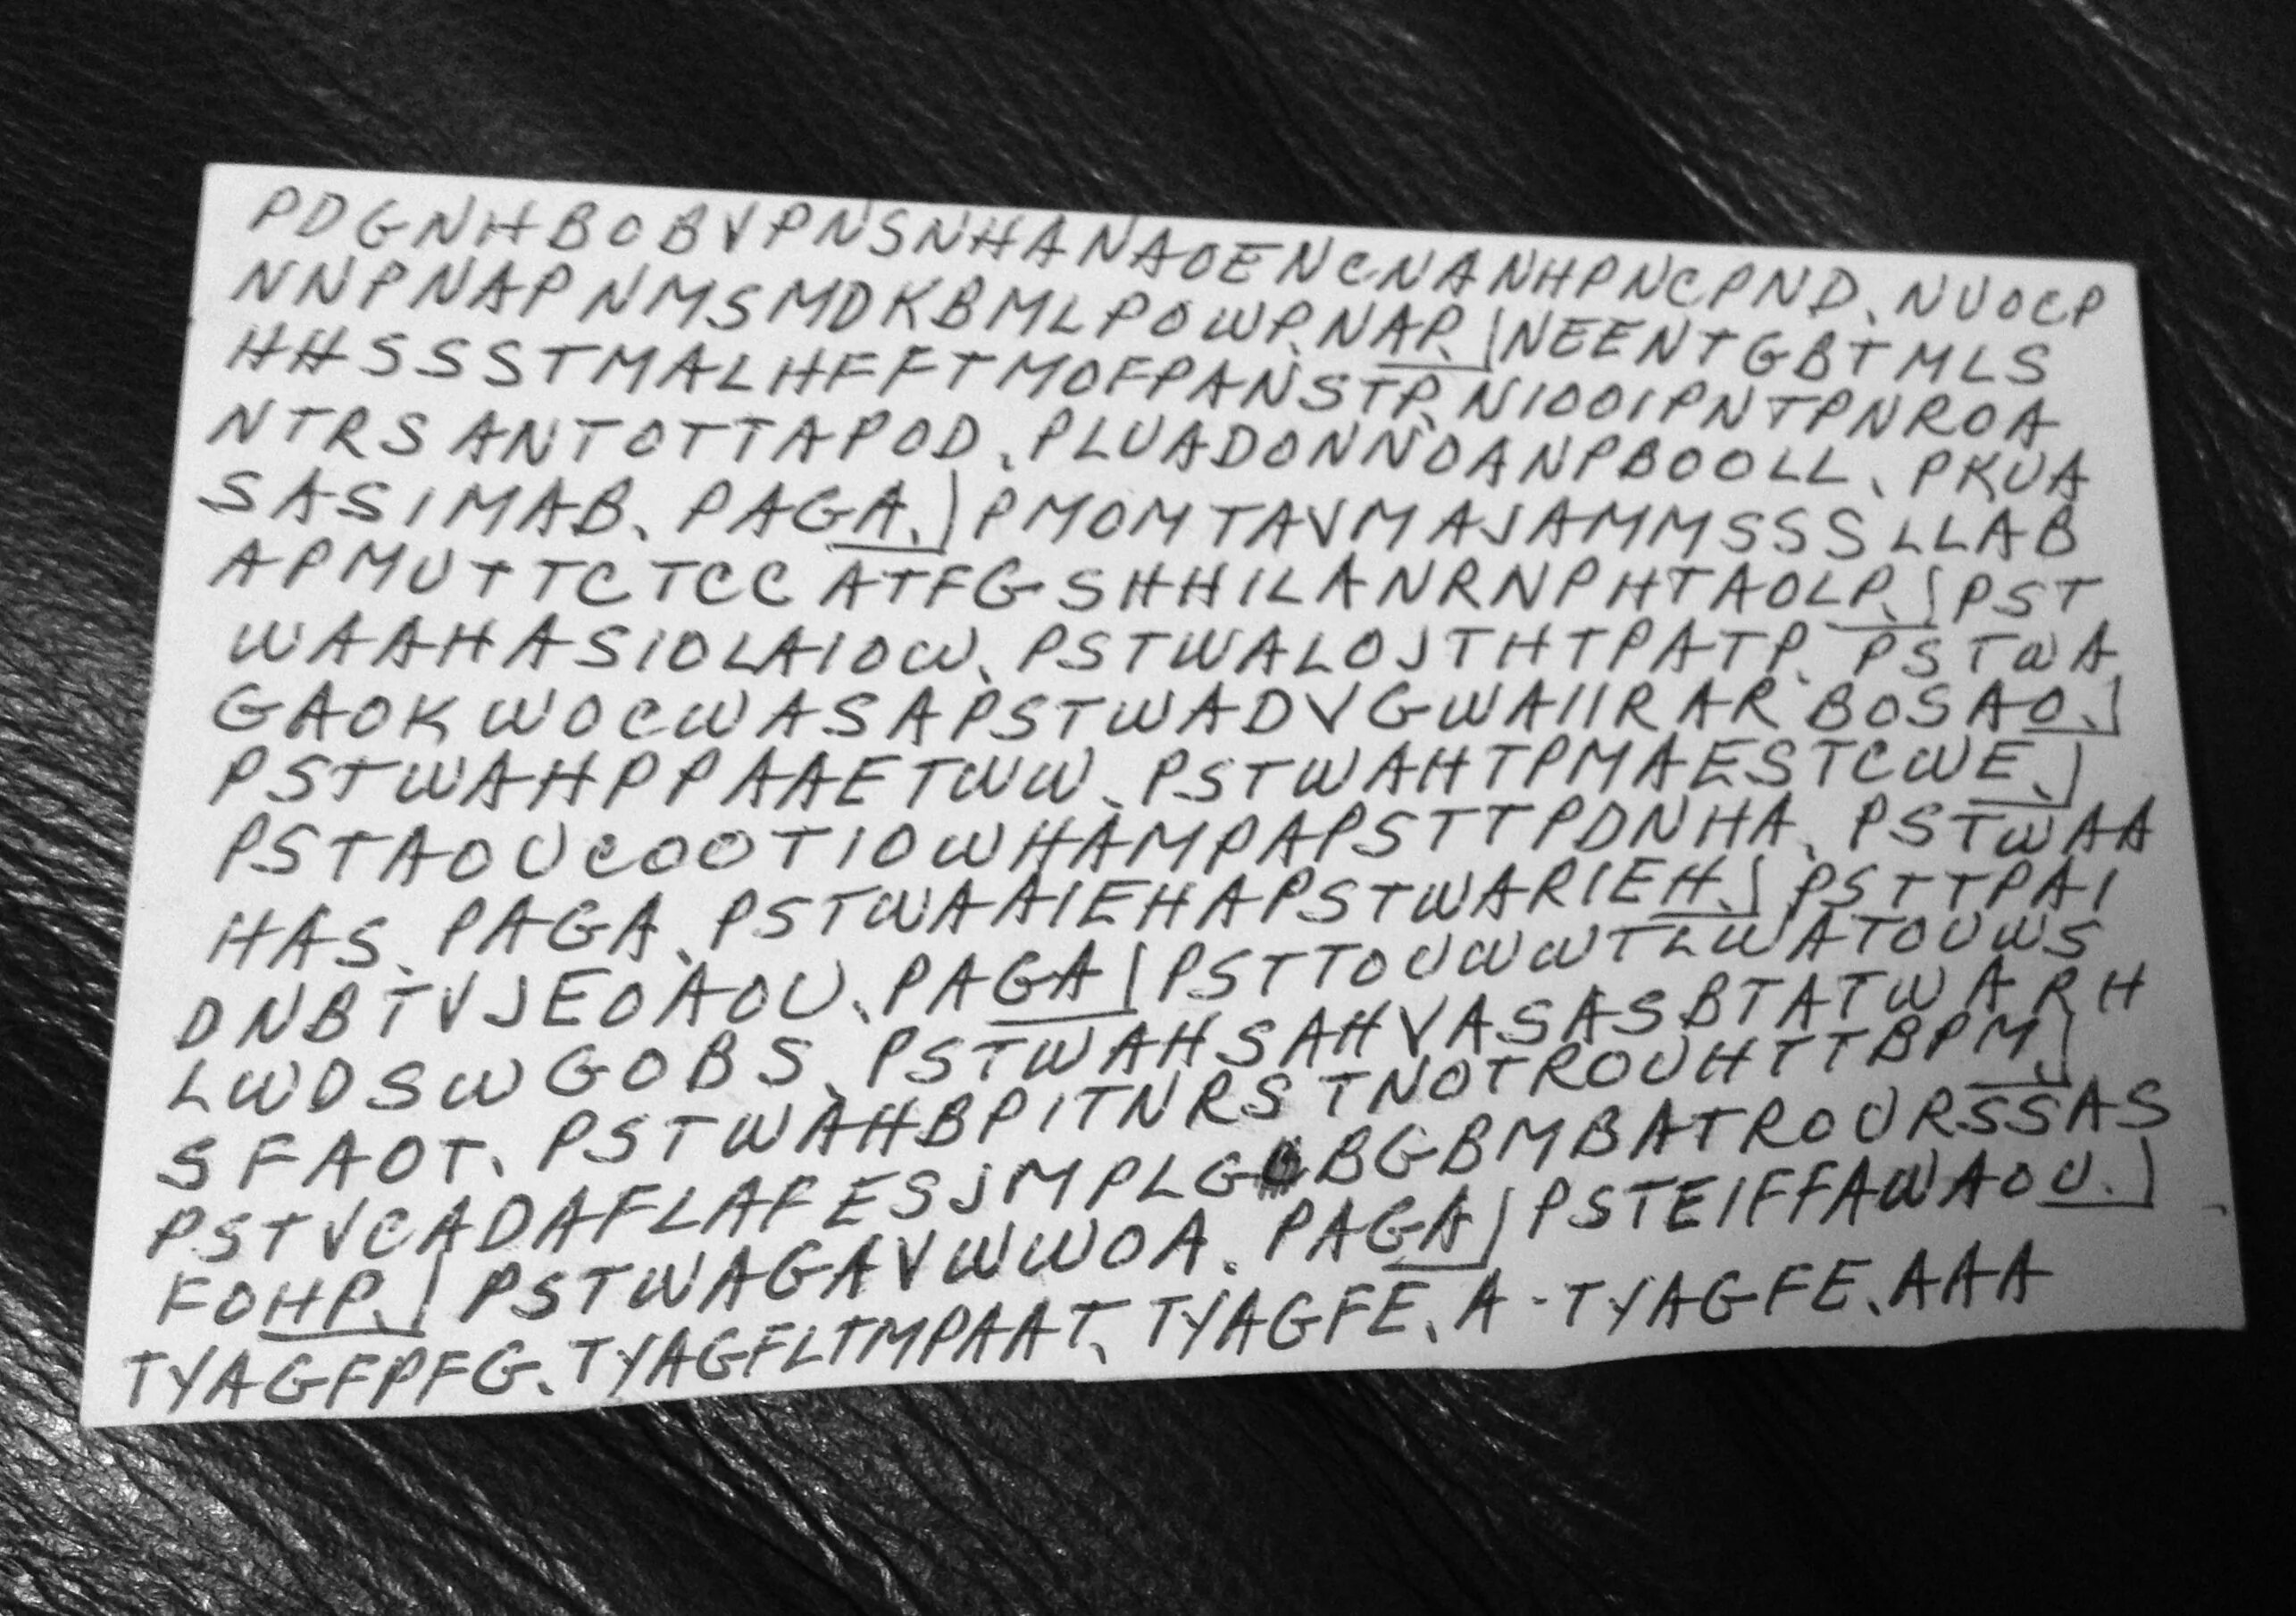 PDGNHBOBVPNSNHANAOENCNANHPNCPND. NUOCP
NNPNAPNMSMDKBMLPOWP. NAP. |NEENTGBTMLS
HHSSSTMALHFFTMOFPANSTP. NIOOIPNTPNROA
NTRSANTOTTAPOD. PLUADONNOANPBOOLL. PKUA
SASIMAB. PAGA.) PMOMTAVMAJAMMSSSLLAB
APMUTTCTCCATFGSHHILANRNPHTAOLP.) PST
WAAHASIOLAIOW. PSTWALOJTHTPATP. PSTWA
GAOKWOCWASAPSTWADVGWAIIRARBOSAO.]
PSTWAHPPAAETWW. PSTWAHTPMAESTCWE.)
PSTAOUCOOTIOWHAMPAPSTTPDNHA. PSTWAA
HAS. PAGA. PSTWAAIEHAPSTWARIEH.) PSTTPAI
DNBTVJEOAOU. PAGA) PSTTOUWWTLWATOUWS
LWDSWGOBS. PSTWAHSAHVASASBTATWARH
SFAOT. PSTWAHBPITNRSTNOTROUHTTBPM)
PSTVCADAFLAFESJMPLGBGBMBATROURSSAS
FOHP.) PSTWAGAVWWOA. PAGA) PSTEIFFAWAOU.]
TYAGFPFG. TYAGFLTMPAAT. TYAGFE. A-TYAGFE. AAA